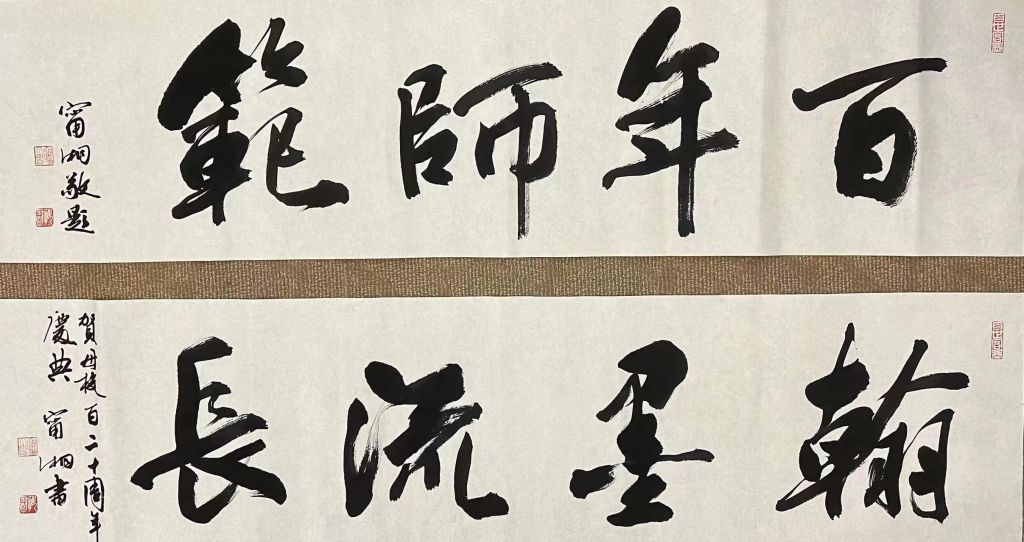 百年師範
甯湘敬題
翰墨流長
賀母校百二十周年
慶典 甯湘書